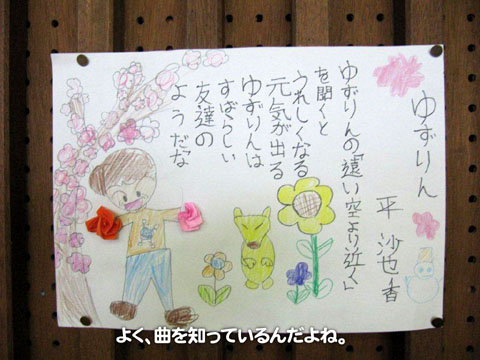 ゆずりん
平 沙也香
ゆずりんの「遠い空より近く」
を聞くと
うれしくなる
元気が出る
ゆずりんは
すばらしい
友達の
ようだな
よく、曲を知っているんだよね。